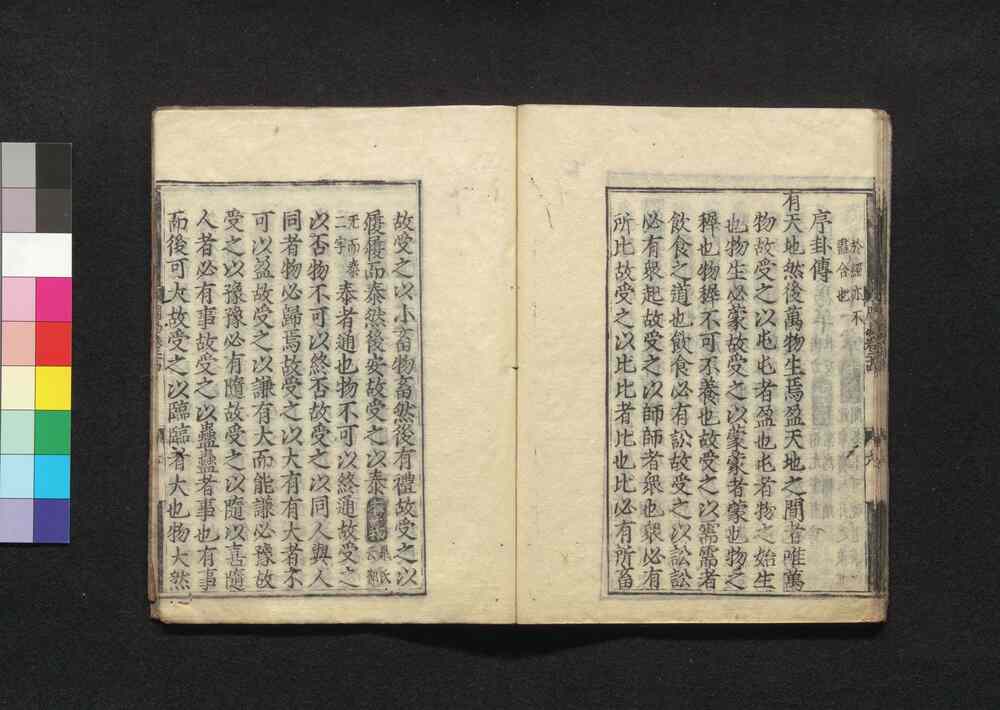 於經亦不
盡合也
序卦傳
有天地然後萬物生焉盈天地之間者唯萬
物故受之以屯屯者盈也屯者物之始生
也物生必蒙故受之以蒙蒙者蒙也物之
穉也物穉不可不養也故受之以需需者
飲食之道也飲食必有訟故受之以訟訟
必有衆起故受之以師師者衆也衆必有
所比故受之以比比者比也比必有所畜
故受之以小畜物畜然後有禮故受之以
履履而泰然後安故受之以泰 晁氏
无而泰
二字 泰者通也物不可以終通故受之
以否物不可以終否故受之以同人與人
同者物必歸焉故受之以大有有大者不
可以盈故受之以謙有大而能謙必豫故
受之以豫豫必有隨故受之以隨以喜隨
人者必有事故受之以蠱蠱者事也有事
而後可大故受之以臨臨者大也物大然